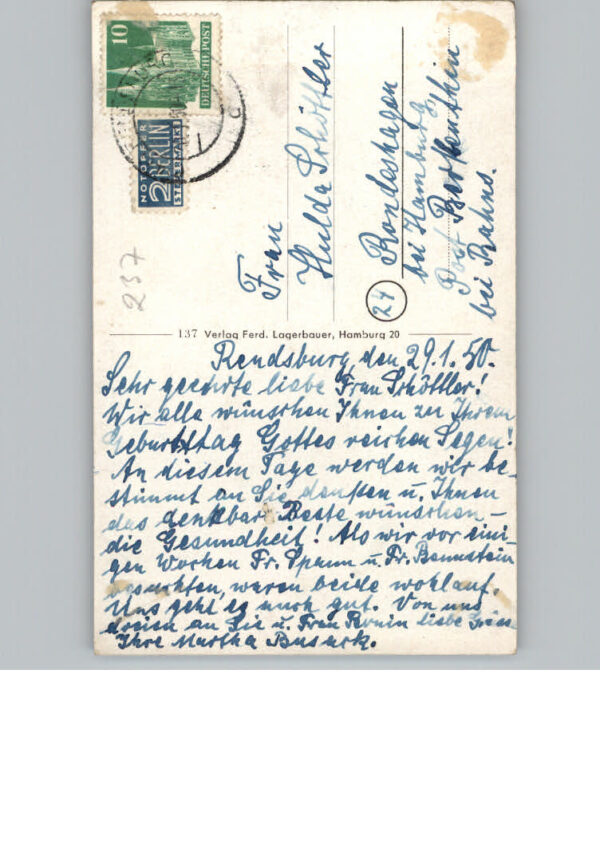 10
DEUTSCHE POST
NOTOPFER
2 BERLIN
STEUERMARKE
237
Frau
Hulda Schöttler
24
Rondeshagen
bei Hamburg
Post Berkenthin
bei Rahns.
137 Verlag Ferd. Lagerbauer, Hamburg 20
Rendsburg, den 29.1.50.
Sehr geehrte liebe Frau Schöttler!
Wir alle wünschen Ihnen zu Ihrem
Geburtstag Gottes reichen Segen!
An diesem Tage werden wir be-
stimmt an Sie denken u. Ihnen
das denkbar Beste wünschen –
die Gesundheit! Als wir vor eini-
gen Wochen Fr. Spann u. Fr. Bennstein
besuchten, waren beide wohlauf.
Uns geht es auch gut. Von uns
dreien an Sie u. Frau liebe
Ihre Martha Busack.